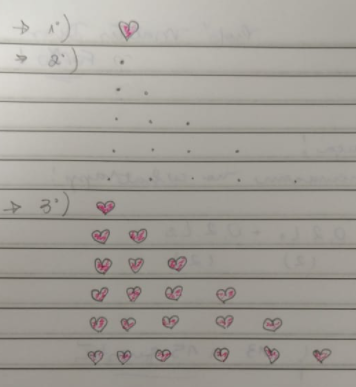 → 1°) ♥
→ 2°) .
. .
. . .
. . . .
. . . . .
→ 3°) ♥
♥ ♥
♥ ♥ ♥
♥ ♥ ♥ ♥
♥ ♥ ♥ ♥ ♥
♥ ♥ ♥ ♥ ♥ ♥